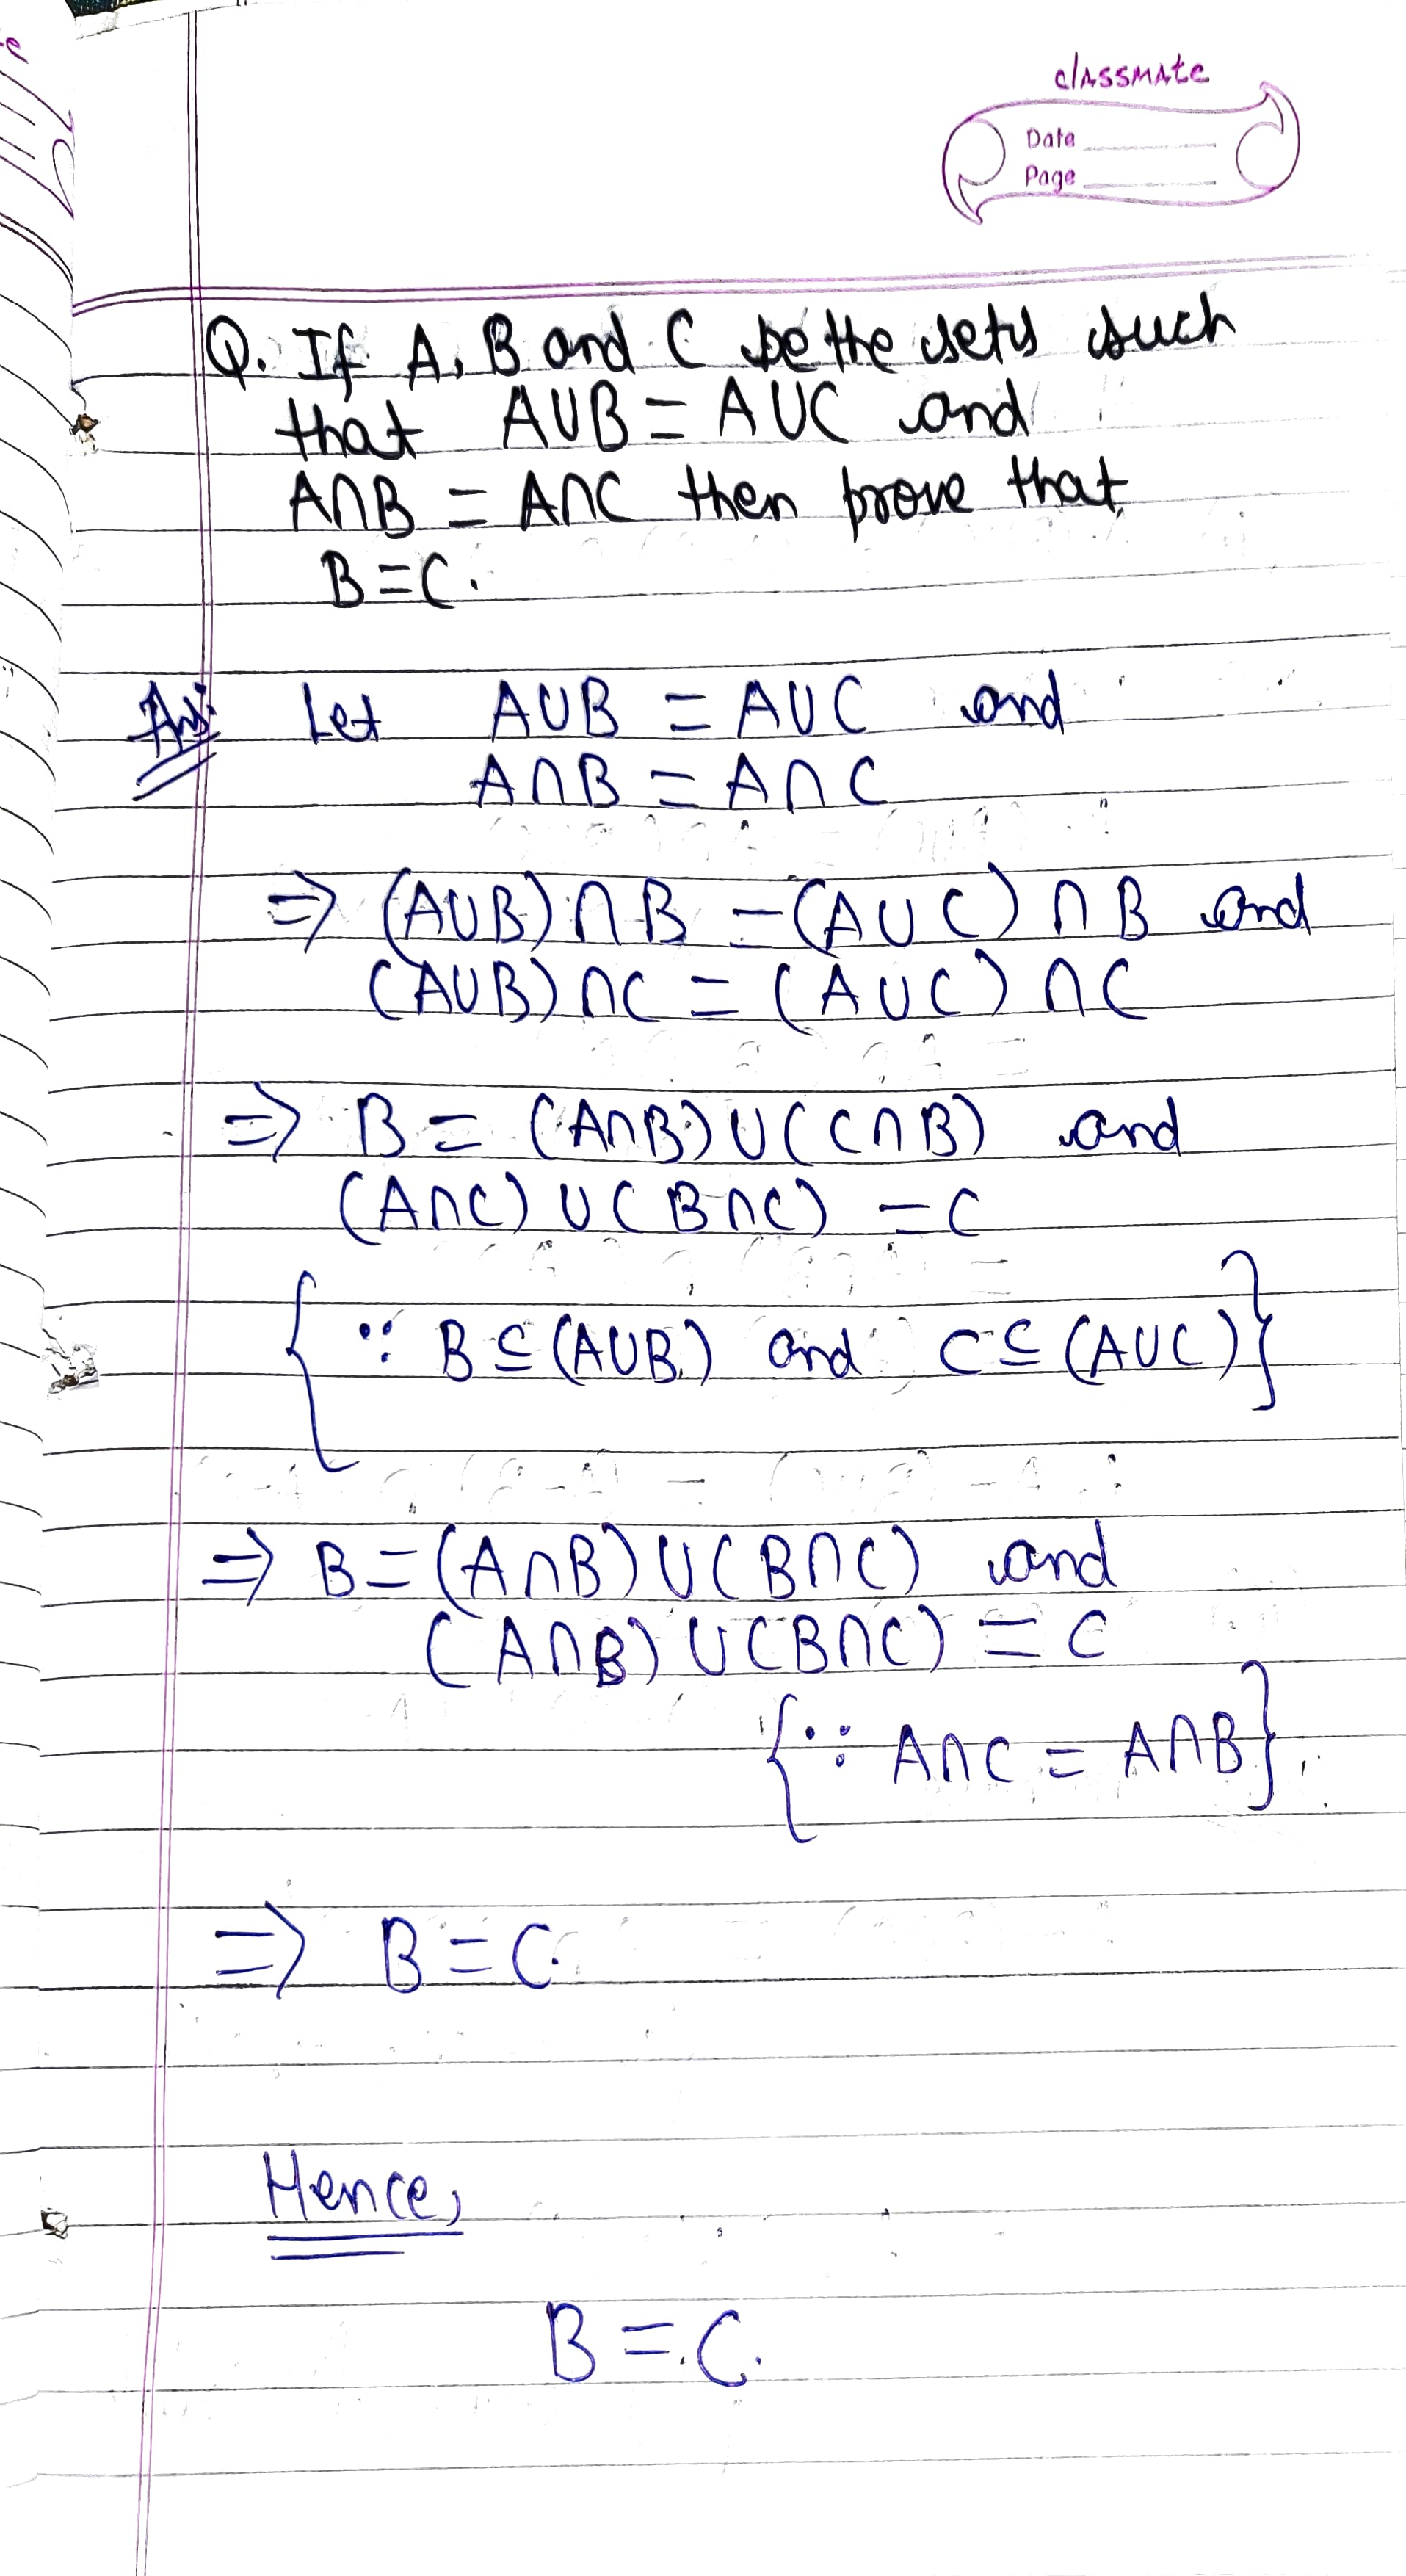 classmate
Date
Page
Q. If A, B and C be the sets such
that A∪B = A∪C and
A∩B = A∩C then prove that
B=C.
Ans: Let A∪B = A∪C and
A∩B = A∩C
⇒ (A∪B)∩B = (A∪C)∩B and
(A∪B)∩C = (A∪C)∩C
⇒ B = (A∩B)∪(C∩B) and
(A∩C)∪(B∩C) = C
{∵ B⊆(A∪B) and C⊆(A∪C)}
⇒ B=(A∩B)∪(B∩C) and
(A∩B)∪(B∩C) = C
{∵ A∩C = A∩B}
⇒ B=C.
Hence,
B=C.